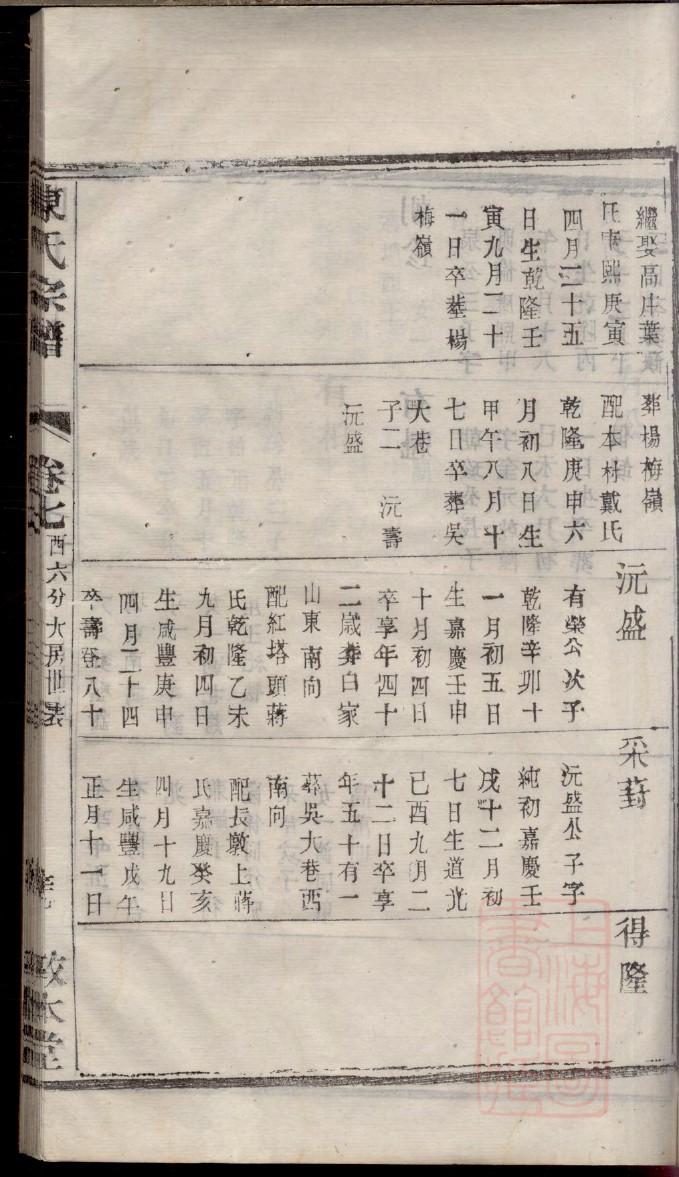 繼娶高庄葉
氏康熙庚寅
四月二十五
日生乾隆壬
寅九月二十
一日卒塟楊
梅嶺
葬楊梅嶺
配本村戴氏
乾隆庚申六
月初八日生
甲午八月十
七日卒葬吳
大巷
子二　沅壽
沅盛
沅盛
有榮公次子
乾隆辛卯十
一月初五日
生嘉慶壬申
十月初四日
卒享年四十
二歳葬白家
山東南向
配紅塔頭蔣
氏乾隆乙未
九月初四日
生咸豐庚申
四月二十四
卒壽登八十
采葑
沅盛公子字
純初嘉慶壬
戌十二月初
七日生道光
己酉九月二
十二日卒享
年五十有一
葬吳大巷西
南向
配長墩上蔣
氏嘉慶癸亥
四月十九日
生咸豐戊午
正月十一日
得隆
陳氏宗譜
卷七
西六分大房世表
敦本堂
上海圖書館藏